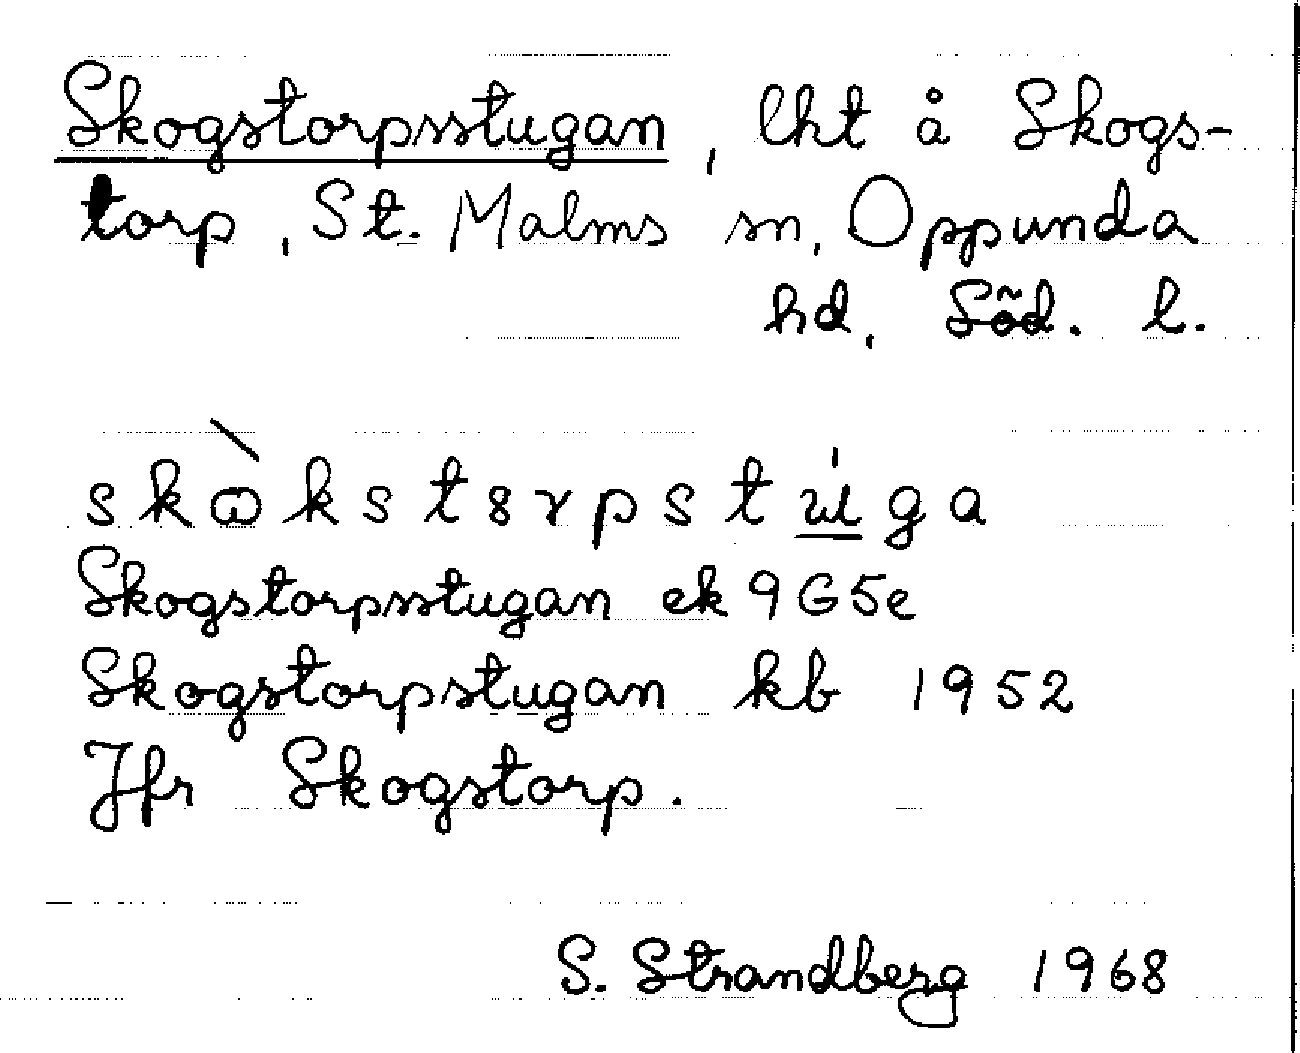 Skogstorpsstugan, lht å Skogs-
torp, St. Malms sn, Oppunda
hd, Söd. l.
skὼkst8rpstú̲ga
Skogstorpsstugan ek 9G5e
Skogstorpstugan kb 1952
Jfr Skogstorp.
S. Strandberg 1968